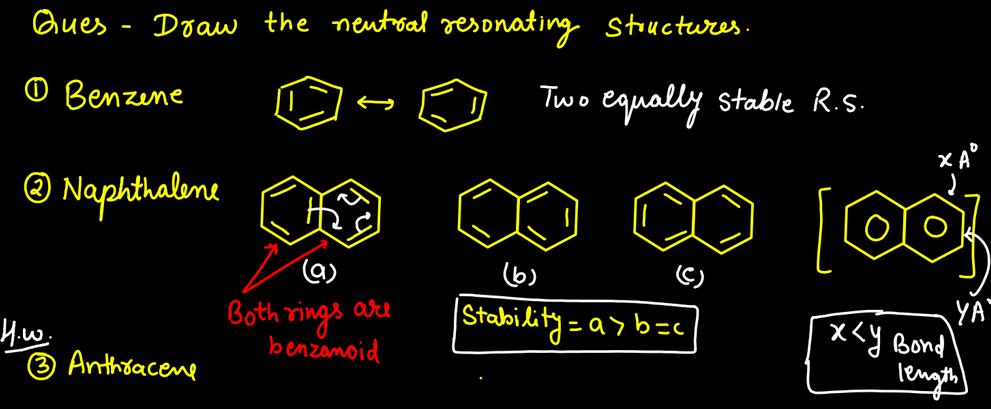 Ques - Draw the neutral resonating structures.
① Benzene
Two equally stable R.S.
② Naphthalene
(a)
(b)
(c)
x A°
y A°
Both rings are
benzanoid
Stability = a > b = c
x < y Bond
length
H.W.
③ Anthracene